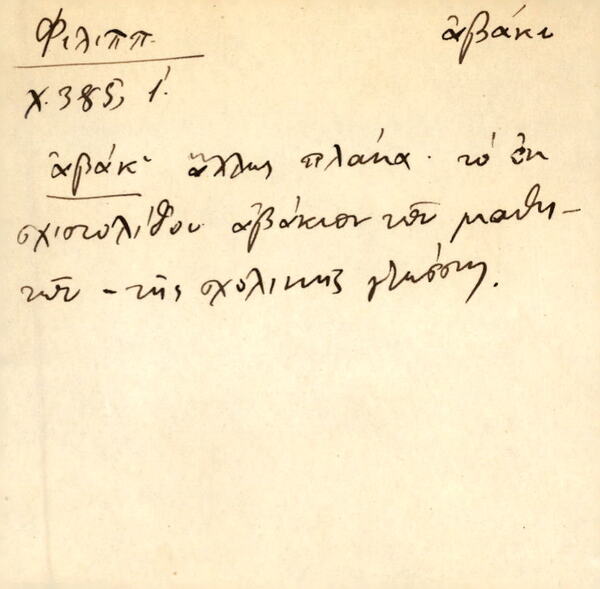 Φιλιππ. ἀβάκι
χ. 385, 1.
ἀβάκ' ἄλλως πλάκα· τὸ ἐκ
σχιστολίθου ἀβάκιον τῶν μαθη-
τῶν – τῆς σχολικῆς γλώσσης.